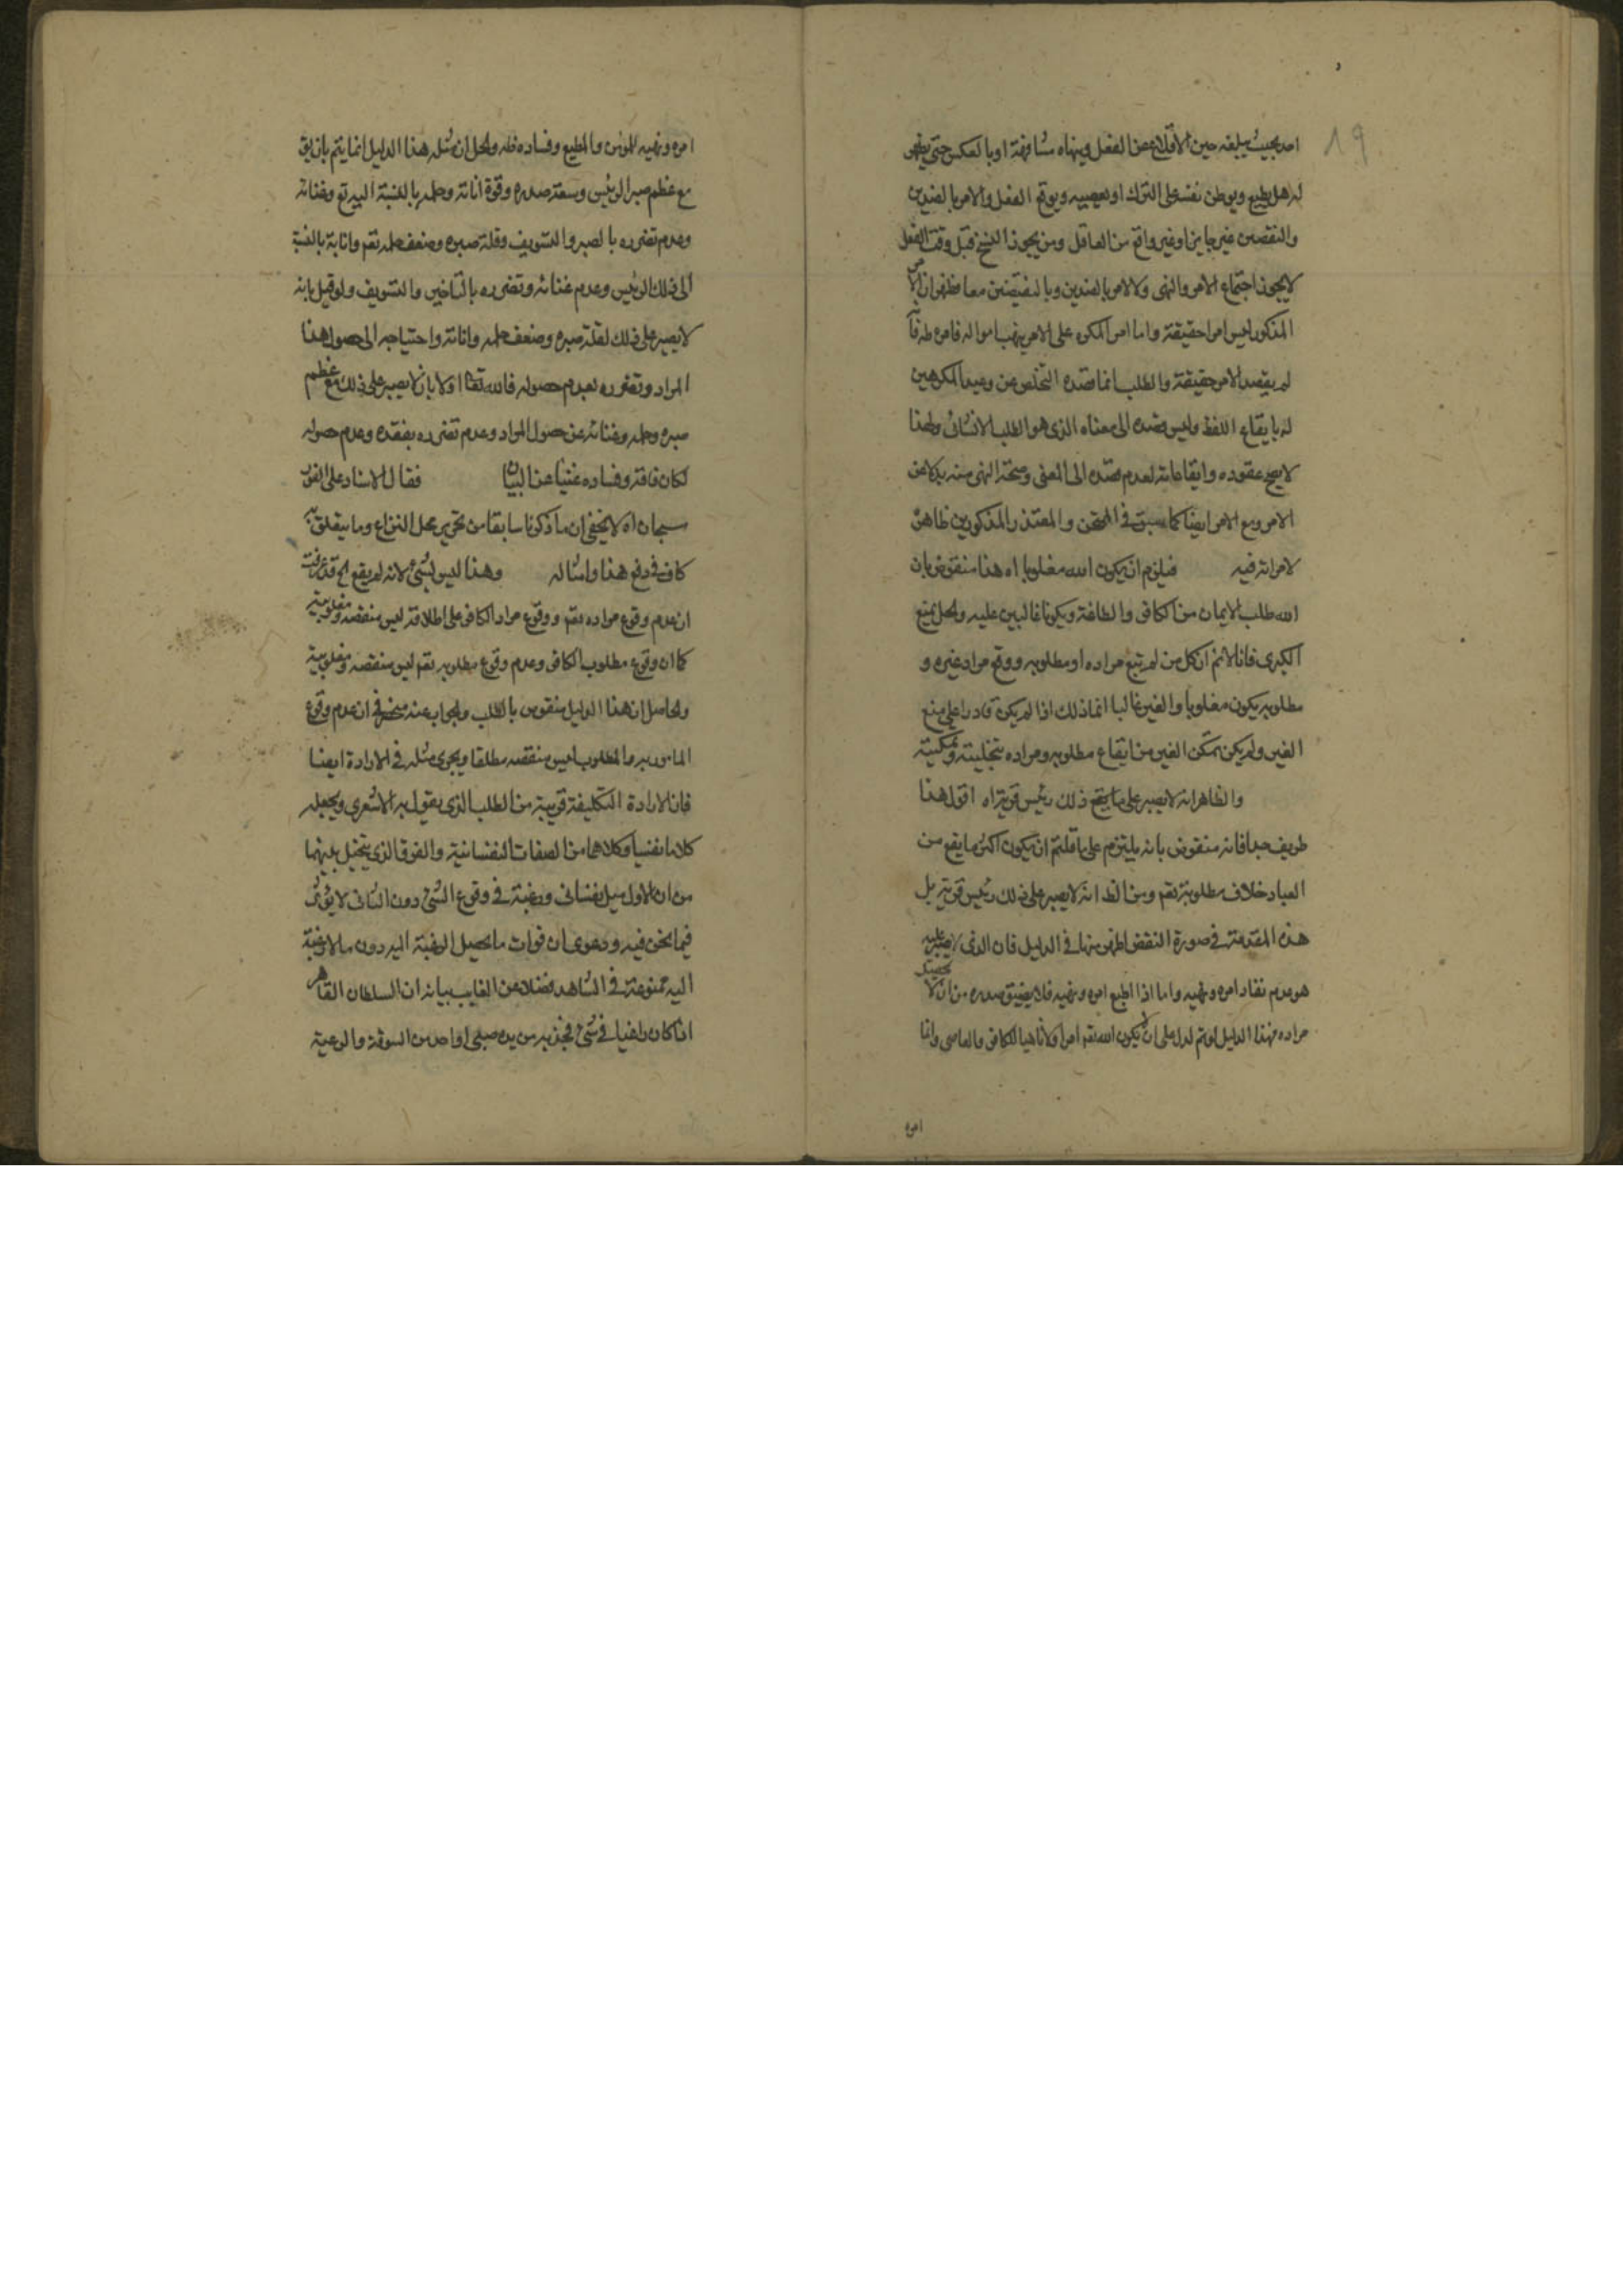 19
امر بحيث يبلغه حين الاقلاع عن الفعل وينهاه مشافهة او بالعكس حتى يظهر
له هل يطيع ويوطن نفسه على الترك او يعصيه ويوقع الفعل والامر بالضدين
والنقيضين غير جايز او غير واقع من العاقل ومن يجوز النسخ قبل وقت الفعل
لا يجوز اجتماع الامر والنهى ولا الامر بالضدين وبالنقيضين معا فظهر ان الامر
المذكور ليس امرا حقيقة واما امر المكره على الامر بنهب امواله فامره
لم يقصد الامر حقيقة والطلب انما قصده التخلص عن وعيد المكرهين
له بايقاع اللفظ وليس قصده الى معناه الذى هو الطلب الانشائى ولهذا
لا يصح عقوده وايقاعاته لعدم قصده الى المعنى وصحة النهى منه بدلا عن
الامر ومع الامر ايضا كما سبق فى الممتحن والمعتذر المذكورين ظاهرة
لا مرية فيه فيلزم ان يكون الله مغلوبا اه هذا منقوض بان
الله طلب الايمان من الكافر والطاعة ويكونا غالبين عليه والحل بمنع
الكبرى فانا لانم ان كل من لم يقع مراده او مطلوبه ووقع مراد غيره و
مطلوبه يكون مغلوبا والغير غالبا انما ذلك اذا لم يكن قادرا على منع
الغير ولم يكن تمكن الغير من ايقاع مطلوبه ومراده بتخليته وتمكينه
والظاهر انه لا يصبر على ما يقع ذلك رئيس قرية اه اقول هذا
طريف جدا فانه منقوض بانه يلتزم على ما قلتم ان يكون اكثر ما يقع من
العباد خلاف مطلوبه تعم ومن الظ انه لا يصبر على ذلك رئيس قرية بل
هذه المقدمة فى صورة النقض اظهر منها فى الدليل فان الذى لا يصبر عليه
هو عدم نفاد امره ونهيه واما اذا اطيع امره ونهيه فلا يضيق صدره من ان لا يحصل
مراده فهذا الدليل لو تم لدل على ان لا يكون الله تعم امرا ولا ناهيا للكافر والعاصى وانما
امره
امره ونهيه للمؤمن والمطيع وفساده ظه والحل ان مثله هذا الدليل انما يتم بان يق
مع عظم صبر الرئيس وسعة صدره وقوة اناته وحلمه بالنسبة اليه تع وغنائه
وعدم تضرره بالصبر والتسويف وقلة صبره وضعف حلمه تعم واناته بالنسبة
الى ذلك الرئيس وعدم غنائه وتضرره بالتاخير والتسويف ولو قيل بانه
لا يصبر على ذلك لقلة صبره وضعف حلمه واناته واحتياجه الى حصول هذا
المراد وتضرره بعدم حصوله فالله تعالى اولا بان لا يصبر على ذلك مع عظم
صبره وحلمه وغنائه عن حصول المراد وعدم تضرره بفقده وعدم حصوله
لكان فاقة وفساده غنيا عن البيان فقال الاستاد على الفور
سبحان اه لا يخفى ان ما ذكرنا سابقا من تحرير محل النزاع وما يتعلق به
كاف فى دفع هذا وامثاله وهذا ليس بشئ لانه لم يقع الخ قد عرفت
ان عدم وقوع مراده تعم ووقوع مراد الكافر على اطلاقه ليس منقصه ومغلوبية
كما ان وقوع مطلوب الكافر وعدم وقوع مطلوبه تعم ليس منقصه ومغلوبية
والحاصل ان هذا الدليل منقوض بالطلب والجواب عنه منحصر فى ان عدم وقوع
المامور به والمطلوب ليس منقصه مطلقا ويجرى مثله فى الارادة ايضا
فان الارادة التكليفية قريبة من الطلب الذى يقول به الاشعرى ويجعله
كلاما نفسيا وكلاهما من الصفات النفسانية والفرق الذى يتخيل بينهما
من ان الاول ميل نفسانى ورغبة فى وقوع الشئ دون الثانى لا يؤثر
فيما نحن فيه ودعوى ان فوات ما يحصل الرغبة اليه دون ما لا رغبة
اليه ممنوعة فى الشاهد فضلا عن الغايب بيانه ان السلطان القاهر
اذا كان راغبا فى شئ فجذبه من يده صبى او احد من السوقة والرعية